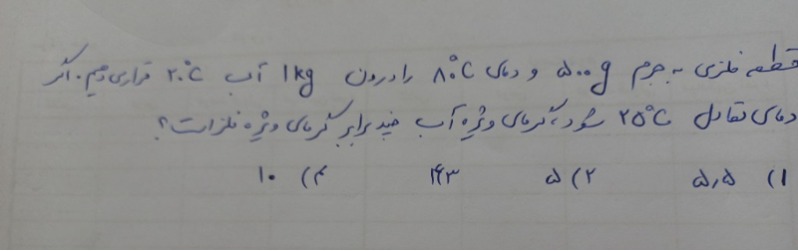 قطعه فلزی به جرم ۵۰۰g و دمای ۸۰°C را درون ۱kg آب ۲۰°C قرار می‌دهیم. اگر
دمای تعادل ۲۵°C شود، گرمای ویژه آب چند برابر گرمای ویژه فلز است؟
۱) ۵٫۵ ۲) ۵ ۳) ۴ ۴) ۱۰